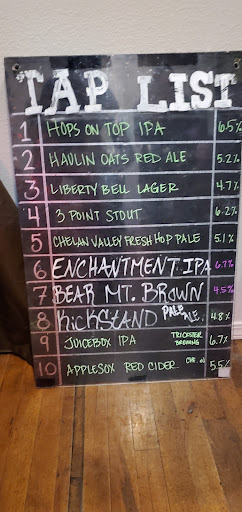 TAP LIST
1 HOPS ON TOP IPA 6.5%
2 HAULIN OATS RED ALE 5.2%
3 LIBERTY BELL LAGER 4.7%
4 3 POINT STOUT 6.2%
5 CHELAN VALLEY FRESH HOP PALE 5.1%
6 ENCHANTMENT IPA 6.7%
7 BEAR MT. BROWN 4.5%
8 KICKSTAND PALE ALE. 4.8%
9 JUICEBOX IPA TRICKSTER BREWING 6.7%
10 APPLESOX RED CIDER 5.5%